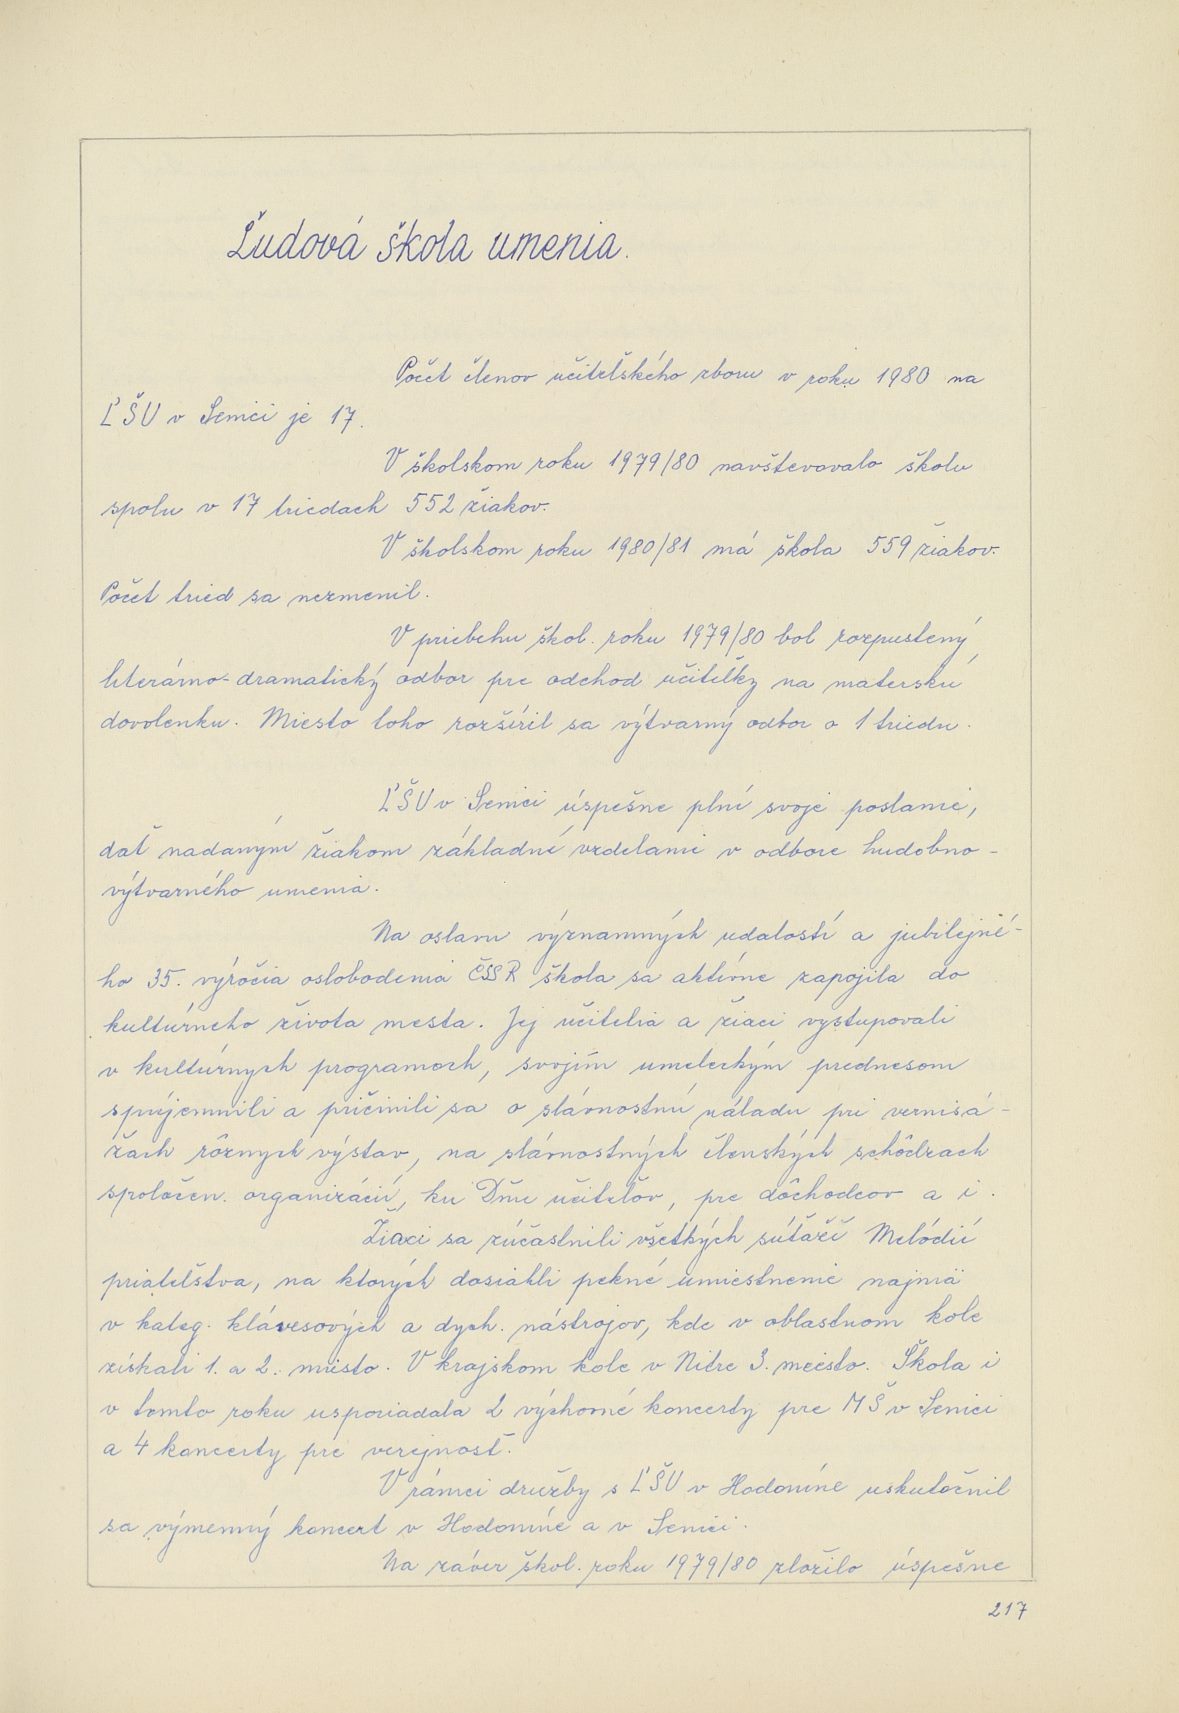 Ľudová škola umenia.
Počet členov učiteľského zboru v roku 1980 na
ĽŠU v Senici je 17.
V školskom roku 1979/80 navštevovalo školu
spolu v 17 triedach 552 žiakov.
V školskom roku 1980/81 má škola 559 žiakov.
Počet tried sa nezmenil.
V priebehu škol. roku 1979/80 bol rozpustený
literárno-dramatický odbor pre odchod učiteľky na materskú
dovolenku. Miesto toho rozšíril sa výtvarný odbor o 1 triedu.
ĽŠU v Senici úspešne plní svoje poslanie,
dať nadaným žiakom základné vzdelanie v odbore hudobno-
výtvarného umenia.
Na oslavu významných udalostí a jubilejné-
ho 35. výročia oslobodenia ČSSR škola sa aktívne zapojila do
kultúrneho života mesta. Jej učitelia a žiaci vystupovali
v kultúrnych programoch, svojím umeleckým prednesom
spríjemnili a pričinili sa o slávnostnú náladu pri vernisá-
žach rôznych výstav, na slávnostných členských schôdzach
spoločen. organizácií, ku Dňu učiteľov, pre dôchodcov a i.
Žiaci sa zúčastnili všetkých súťaží Melódií
priateľstva, na ktorých dosiahli pekné umiestnenie najmä
v kateg. klávesových a dych. nástrojov, kde v oblastnom kole
získali 1. a 2. miesto. V krajskom kole v Nitre 3. miesto. Škola i
v tomto roku usporiadala 2 výchovné koncerty pre MŠ v Senici
a 4 koncerty pre verejnosť.
V rámci družby s ĽŠU v Hodoníne uskutočnil
sa výmenný koncert v Hodoníne a v Senici.
Na záver škol. roku 1979/80 zložilo úspešne
217